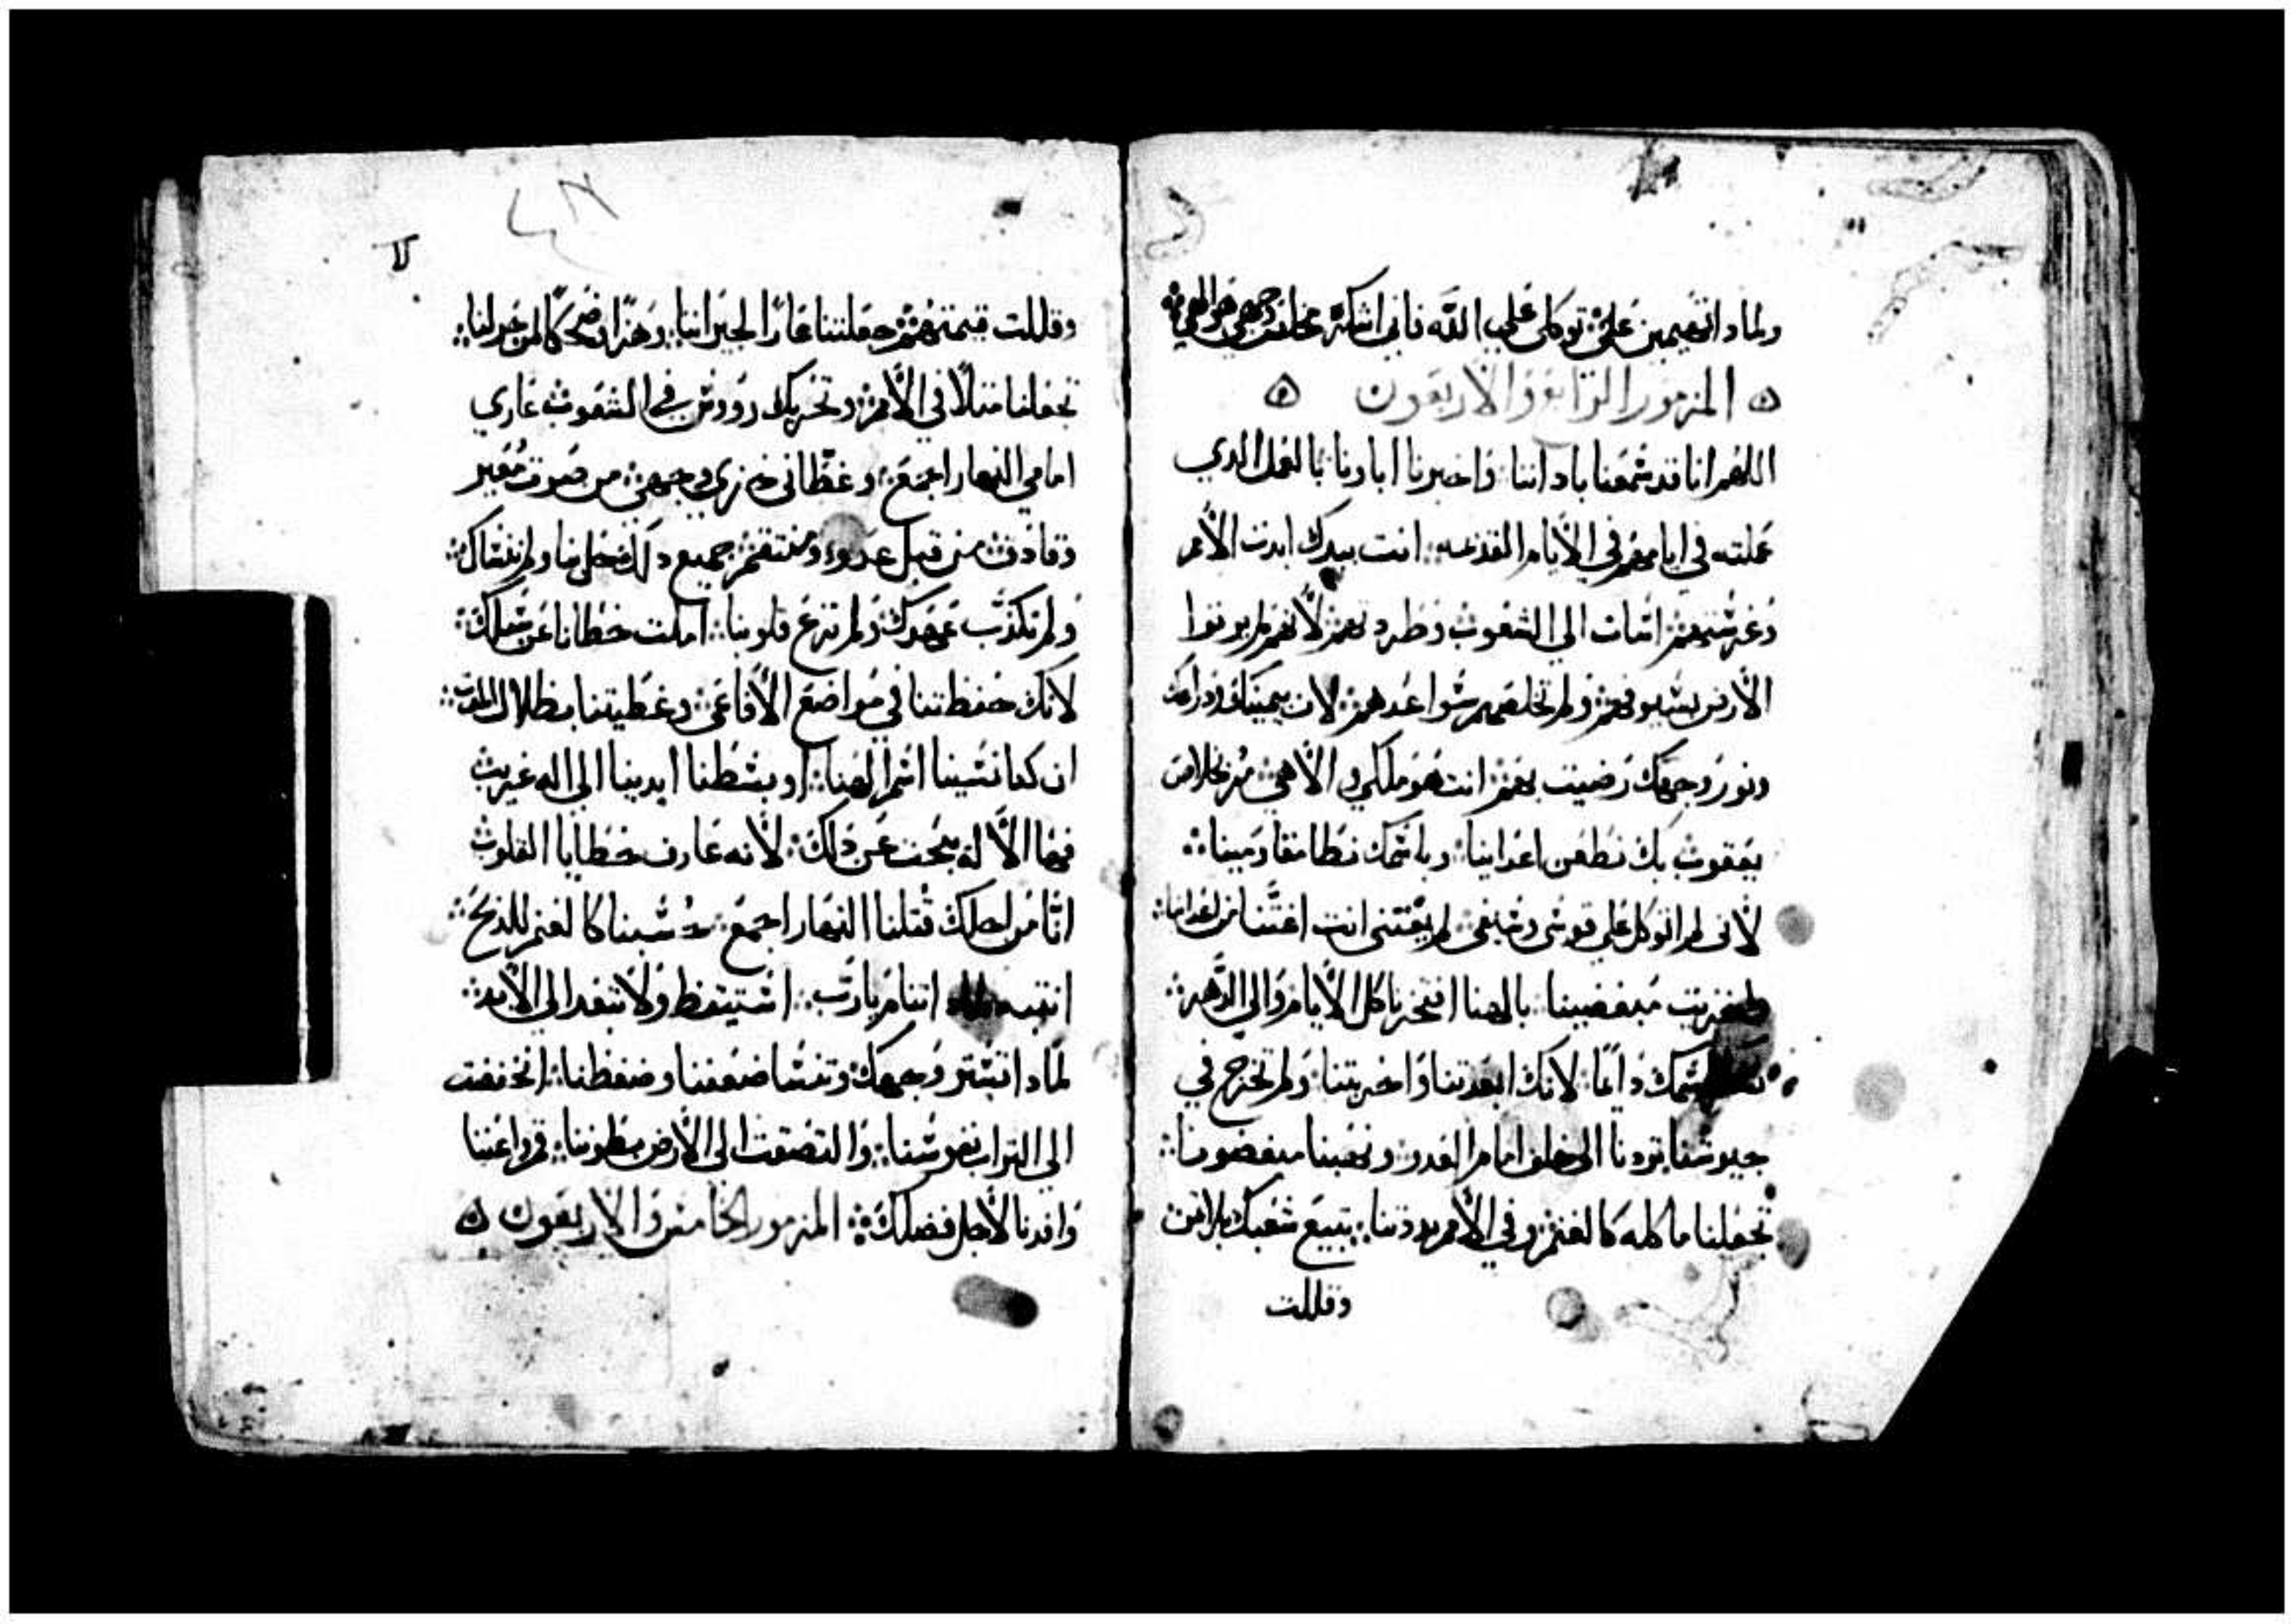 ولماذا تهيمين علي توكلي علي الله فاني اشكره مخلص وجهي هو الهي
ه المزمور الرابع والاربعون ه
اللهم انا قد سمعنا باداننا واخبرونا اباونا بالعمل الدي
عملته في ايامهم في الأيام القديمه انت بيدك ابدت الأمم
وغرستهم اسات الي الشعوب وطردتهم لأنهم لم يرتوا
الأرض بسيوفهم ولم تخلصهم سواعدهم لان يمينك ودراعك
ونور وجهك رضيت بهم انت هو ملكي والاهي مر بخلاص
يعقوب بك نطعن اعداينا وباسمك نطا مقاومينا
لأني لم اتوكل علي قوسي وسيفي لم يغتني انت اغتنا من اعداينا
واخزيت مبغضينا بالهنا افتخرنا كل الأيام والي الدهر
لاسمك دايمًا لانك ابعدتنا واخزيتنا ولم تخرج في
جيوشنا تردنا الي خلف امام العدو ونهبنا مبغضونا
تجعلنا ماكله كالغنم وفي الأمم بددتنا تبيع شعبك بلا ثمن
وقللت
لا
وقللت قيمتهم جعلتنا عارًا لجيراننا وهزًا وضحكًا لمن حولنا
تجعلنا مثلًا في الأمم وتحريك رووس في الشعوب عاري
امامي النهار اجمع وغطاني خزي وجهي من صوت معير
وقادف من قبل عدو ومنتقم جميع دلك حل بنا ولم ننساك
ولم نكذب عهدك ولم تزغ قلوبنا املت خطانا عن سبلك
لأنك حفظتنا في مواضع الأفاعي وغطيتنا بظلال الموت
ان كنا نسينا اسم الهنا او بسطنا ايدينا الي اله غريب
فهما الأله يبحث عن دلك لأنه عارف خطايا القلوب
انا من اجلك قتلنا النهار اجمع حسبنا كالغنم للذبح
انتبه لمادا تنام يارب استيقظ ولا تبعد الي الأبد
لمادا تستر وجهك وتنسا ضعفنا وضغطنا انخفضت
الي التراب نفوسنا والتصقت الي الأرض بطوننا قم واعننا
وافدنا لأجل فضلك المزمور الخامس والاربعون ه